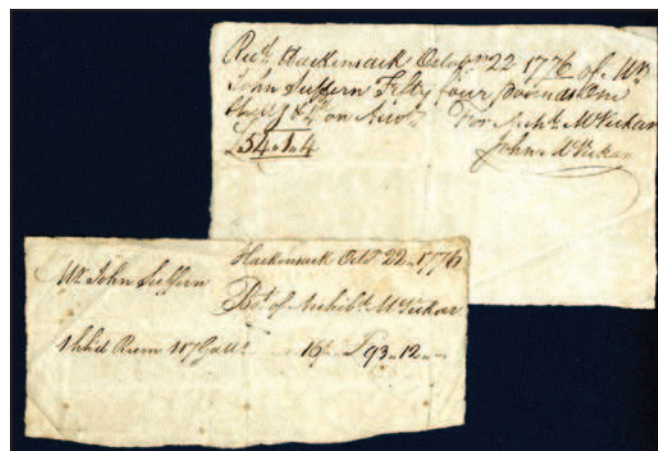 Recd. Hackensack October 22 1776 of Mr.
John Suffern Fifty four pounds One
& 4d on Accot. For Archd. McVickar
£54"1"4 John McVickar
Hackensack Octo 22 1776
Mr. John Suffern
Bot of Archibd. McVickar
1 hhd Rum 117 Galls 16/ £93"12"-